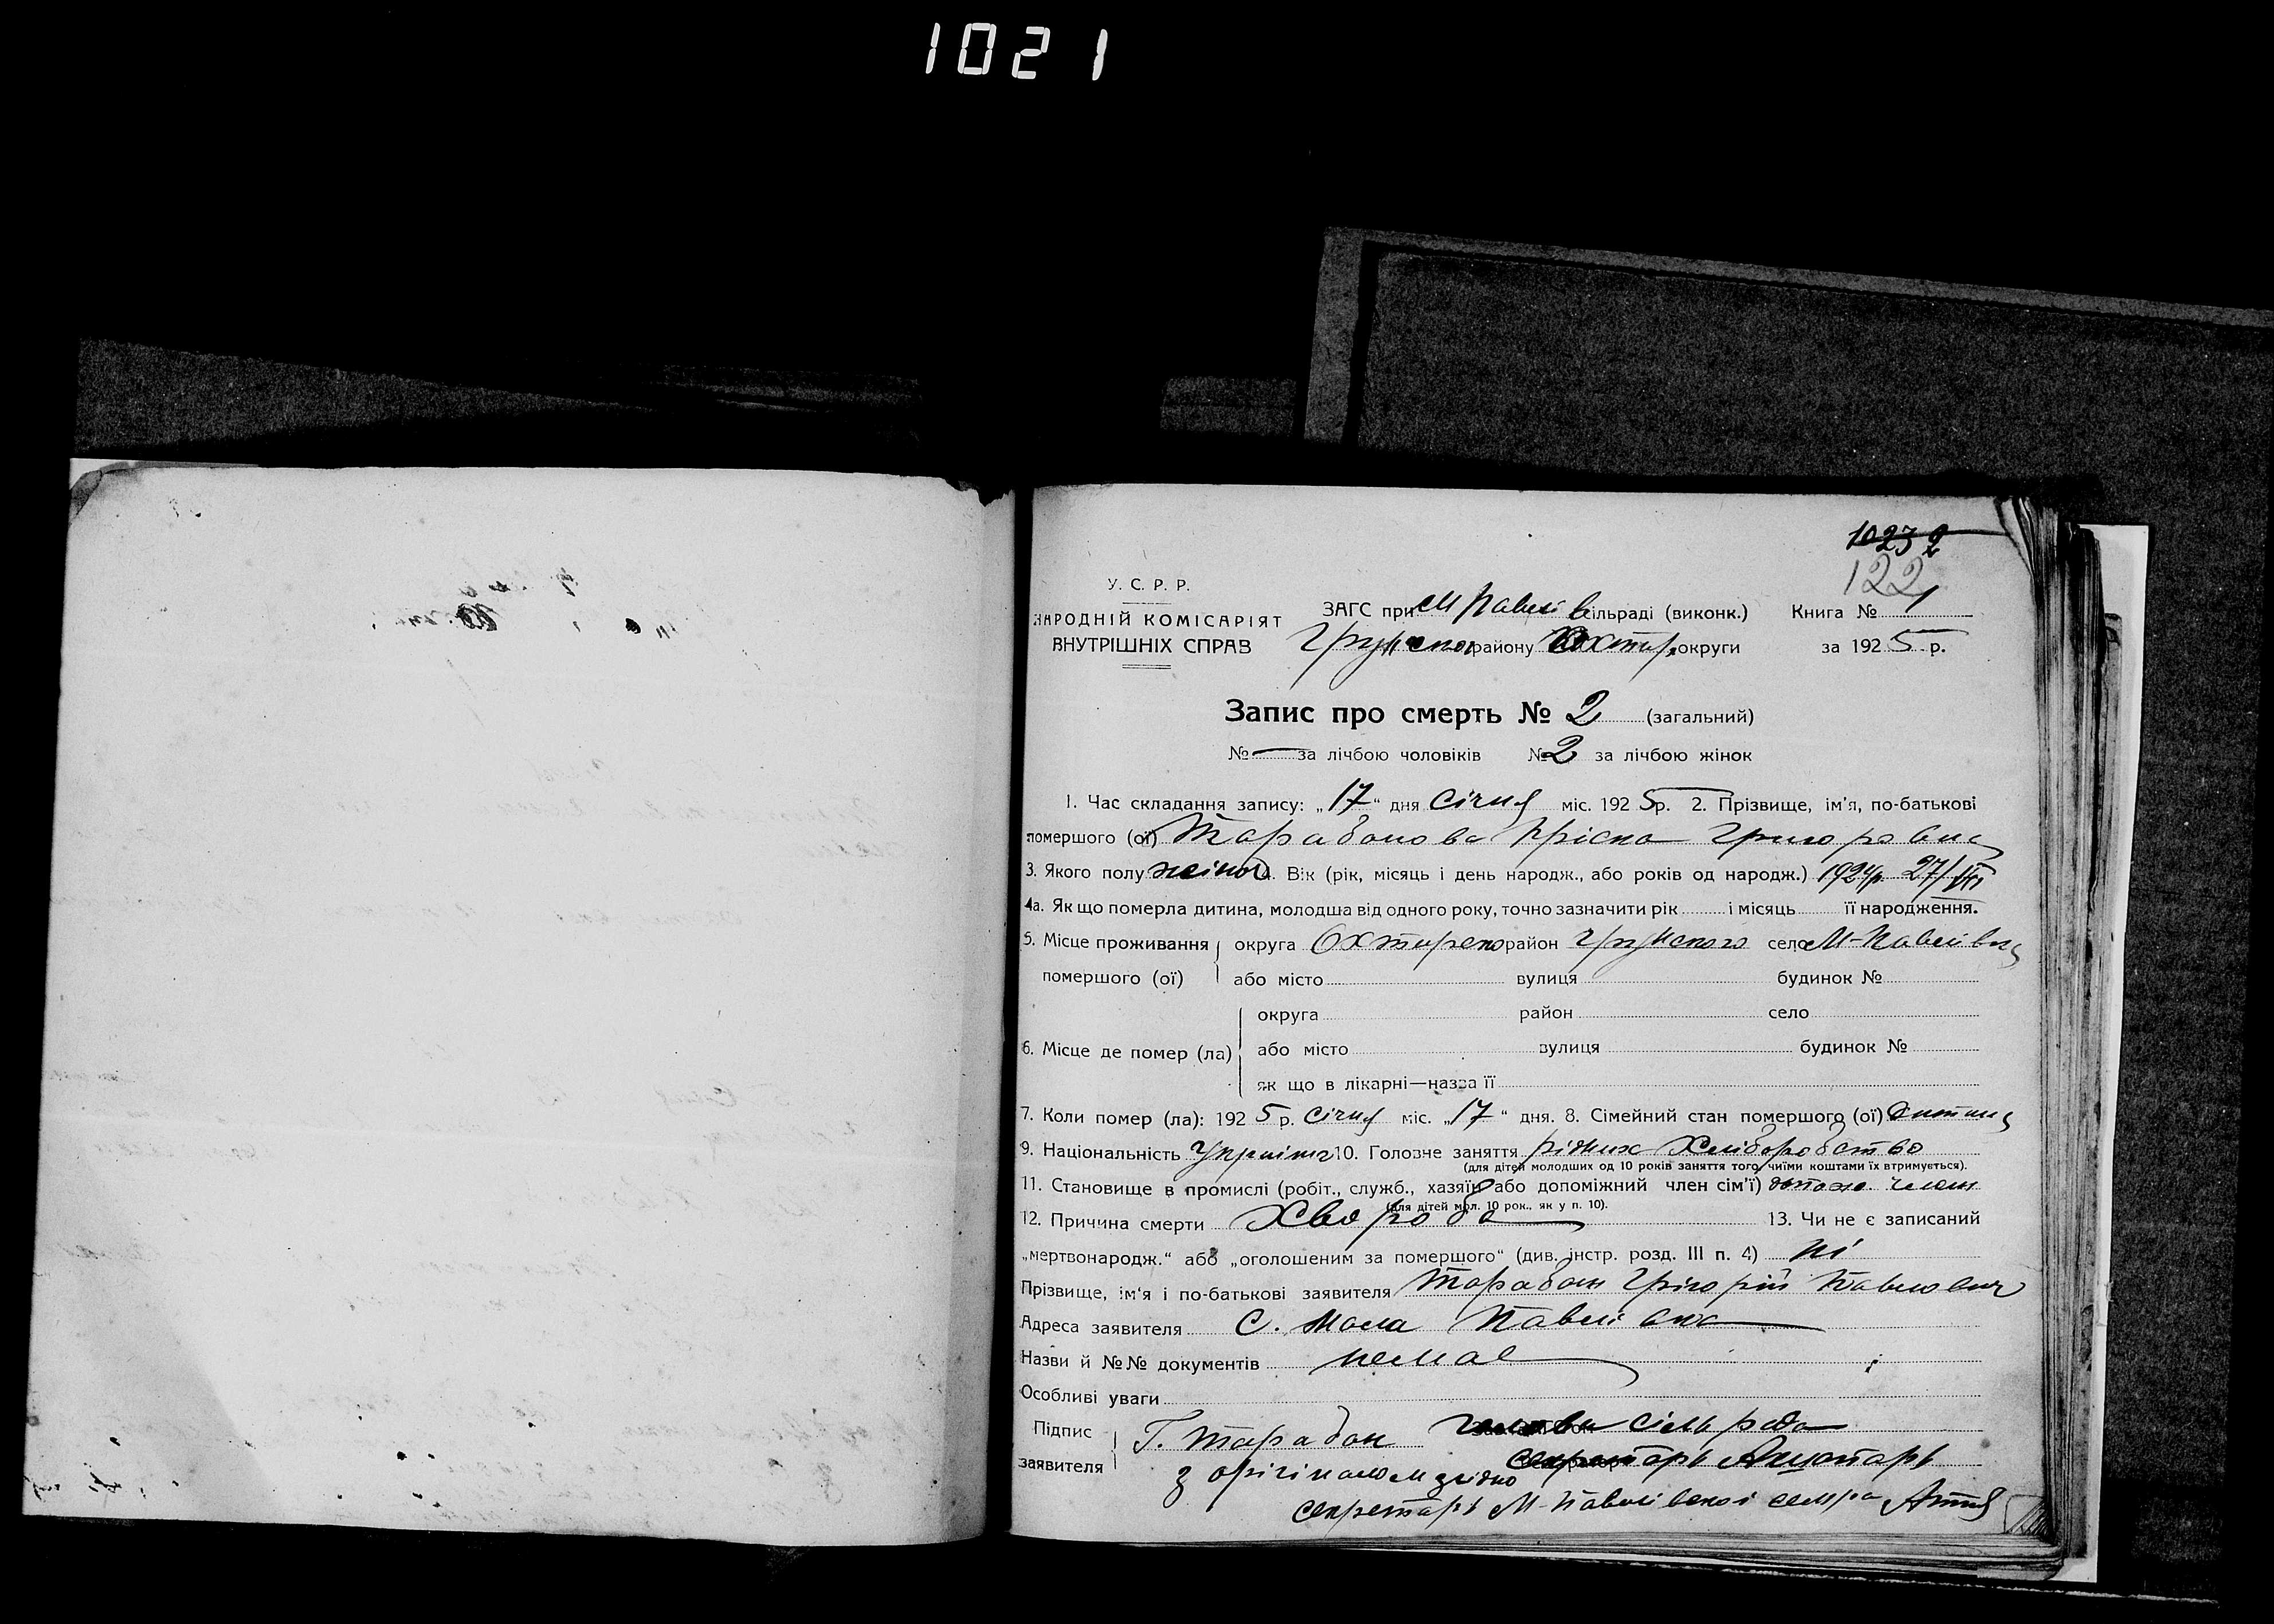 1021
1023 2
122
У. С. Р. Р.
НАРОДНІЙ КОМІСАРІЯТ
ВНУТРІШНІХ СПРАВ
ЗАГС при М Павлів сільраді (виконк.) Книга № 1
Грунсько району Охтир. округи за 1925 р.
Запис про смерть № 2 (загальний)
№ — за лічбою чоловіків № 2 за лічбою жінок
1. Час складання запису: „17“ дня Січня міс. 1925 р. 2. Прізвище, ім'я, по-батькові
помершого (ої) Тарабанова Григоровна
3. Якого полу жіноч. Вік (рік, місяць і день народж., або років од народж.) 1924р. 27/VII
4а. Як що померла дитина, молодша від одного року, точно зазначити рік і місяць її народження.
5. Місце проживання округа Охтирсько район Грунського село М-Павлівка
помершого (ої) або місто вулиця будинок №
округа район село
6. Місце де помер (ла) або місто вулиця будинок №
як що в лікарні—назва її
7. Коли помер (ла): 1925 р. Січня міс. „17“ дня. 8. Сімейний стан помершого (ої) дитина
9. Національність 10. Головне заняття рідних Хліборобство
(для дітей молодших од 10 років заняття того, чиїми коштами їх втримується).
11. Становище в промислі (робіт., служб., хазяїн або допоміжний член сім'ї) член
(для дітей мол. 10 рок., як у п. 10).
12. Причина смерти Хвороба 13. Чи не є записаний
„мертвонародж.“ або „оголошеним за помершого“ (див. інстр. розд. III п. 4) ні
Прізвище, ім'я і по-батькові заявителя Тарабан Грігорій Павлович
Адреса заявителя С. Мала Павлівка
Назви й №№ документів немає
Особливі уваги
Підпис
заявителя Г. Тарабан голова сільради
секретарь
З орігіналом згідно
секретарь М-Павлівської сельра